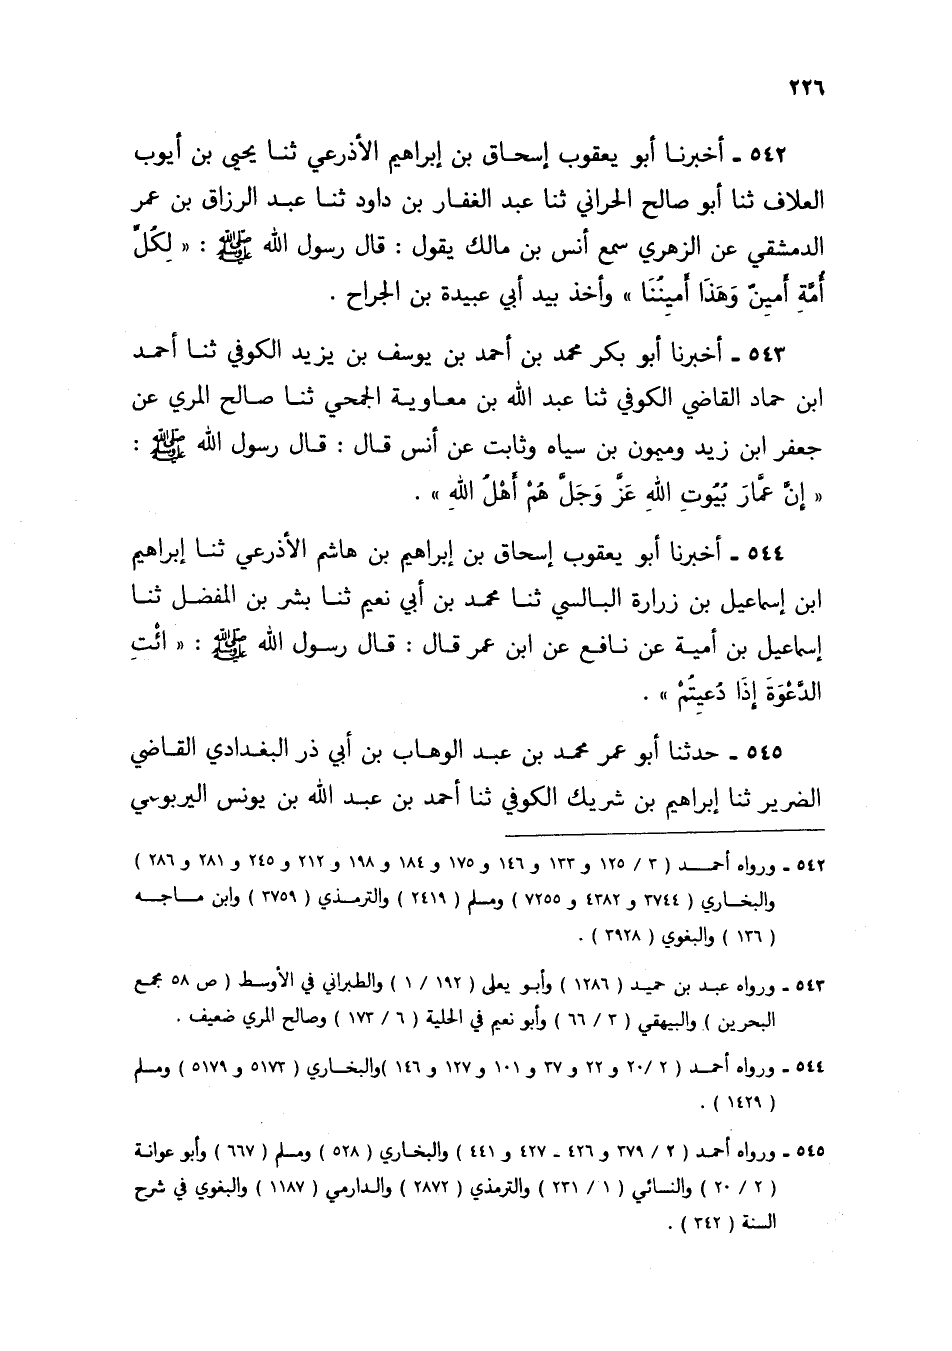 ٢٢٦
٥٤٢ ـ أخبرنا أبو يعقوب إسحاق بن إبراهيم الأذرعي ثنا يحيى بن أيوب
العلاف ثنا أبو صالح الحراني ثنا عبد الغفار بن داود ثنا عبد الرزاق بن عمر
الدمشقي عن الزهري سمع أنس بن مالك يقول : قال رسول الله ﷺ : « لِكُلِّ
أُمَّةٍ أَمِينٌ وَهَذَا أَمِينُنَا » وأخذ بيد أبي عبيدة بن الجراح .
٥٤٣ ـ أخبرنا أبو بكر محمد بن أحمد بن يوسف بن يزيد الكوفي ثنا أحمد
ابن حماد القاضي الكوفي ثنا عبد الله بن معاوية الجمحي ثنا صالح المري عن
جعفر ابن زيد وميمون بن سياه وثابت عن أنس قال : قال رسول الله ﷺ :
« إِنَّ عُمَّارَ بُيُوتِ اللهِ عَزَّ وَجَلَّ هُمْ أَهْلُ اللهِ » .
٥٤٤ ـ أخبرنا أبو يعقوب إسحاق بن إبراهيم بن هاشم الأذرعي ثنا إبراهيم
ابن إسماعيل بن زرارة البالسي ثنا محمد بن أبي نعيم ثنا بشر بن المفضل ثنا
إسماعيل بن أمية عن نافع عن ابن عمر قال : قال رسول الله ﷺ : « ائْتِ
الدَّعْوَةَ إِذَا دُعِيتُمْ » .
٥٤٥ ـ حدثنا أبو عمر محمد بن عبد الوهاب بن أبي ذر البغدادي القاضي
الضرير ثنا إبراهيم بن شريك الكوفي ثنا أحمد بن عبد الله بن يونس اليربوعي
٥٤٢ ـ ورواه أحمد ( ٣ / ١٢٥ و ١٣٣ و ١٤٦ و ١٧٥ و ١٨٤ و ١٩٨ و ٢١٢ و ٢٤٥ و ٢٨١ و ٢٨٦ )
والبخاري ( ٣٧٤٤ و ٤٣٨٢ و ٧٢٥٥ ) ومسلم ( ٢٤١٩ ) والترمذي ( ٣٧٥٩ ) وابن ماجه
( ١٣٦ ) والبغوي ( ٣٩٢٨ ) .
٥٤٣ ـ ورواه عبد بن حميد ( ١٢٨٦ ) وأبو يعلى ( ١٩٢ / ١ ) والطبراني في الأوسط ( ص ٥٨ مجمع
البحرين ) والبيهقي ( ٣ / ٦٦ ) وأبو نعيم في الحلية ( ٦ / ١٧٣ ) وصالح المري ضعيف .
٥٤٤ ـ ورواه أحمد ( ٢ /٢٠ و ٢٢ و ٣٧ و ١٠١ و ١٢٧ و ١٤٦ )والبخاري ( ٥١٧٣ و ٥١٧٩ ) ومسلم
( ١٤٢٩ ) .
٥٤٥ ـ ورواه أحمد ( ٢ / ٣٧٩ و ٤٢٦ ـ ٤٢٧ و ٤٤١ ) والبخاري ( ٥٢٨ ) ومسلم ( ٦٦٧ ) وأبو عوانة
( ٢ / ٢٠ ) والنسائي ( ١ / ٢٣١ ) والترمذي ( ٢٨٧٢ ) والدارمي ( ١١٨٧ ) والبغوي في شرح
السنة ( ٣٤٢ ) .